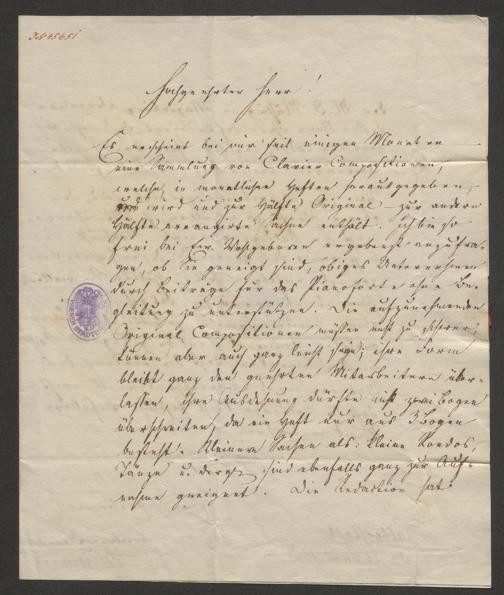 Hochgeehrter Herr!
Es erscheint bei mir seit einigen Monaten
eine Sammlung von Clavier Compositionen,
welche in monatlichen Heften herausgegeben
wird und zur Hälfte Original – zur andern
Hälfte arrangirte Sachen enthält. Ich bin so
frei bei Ew. Wohlgeboren ergebenst anzufra-
gen, ob Sie geneigt sind, obiges Unternehmen
durch Beiträge für das Pianoforte ohne Be-
gleitung zu unterstützen. Die aufzunehmenden
Original Compositionen müssen nicht zu schwer,
können aber auch ganz leicht sein; ihre Form
bleibt ganz den geehrten Mitarbeitern über-
lassen, ihre Ausdehnung dürfte nicht zwei Bogen
überschreiten, da ein Heft nur aus 3 Bogen
besteht. Kleinere Sachen als: kleine Rondos,
Tänze u. dergl. sind ebenfalls ganz zur Auf-
nahme geeignet. Die Redaction hat